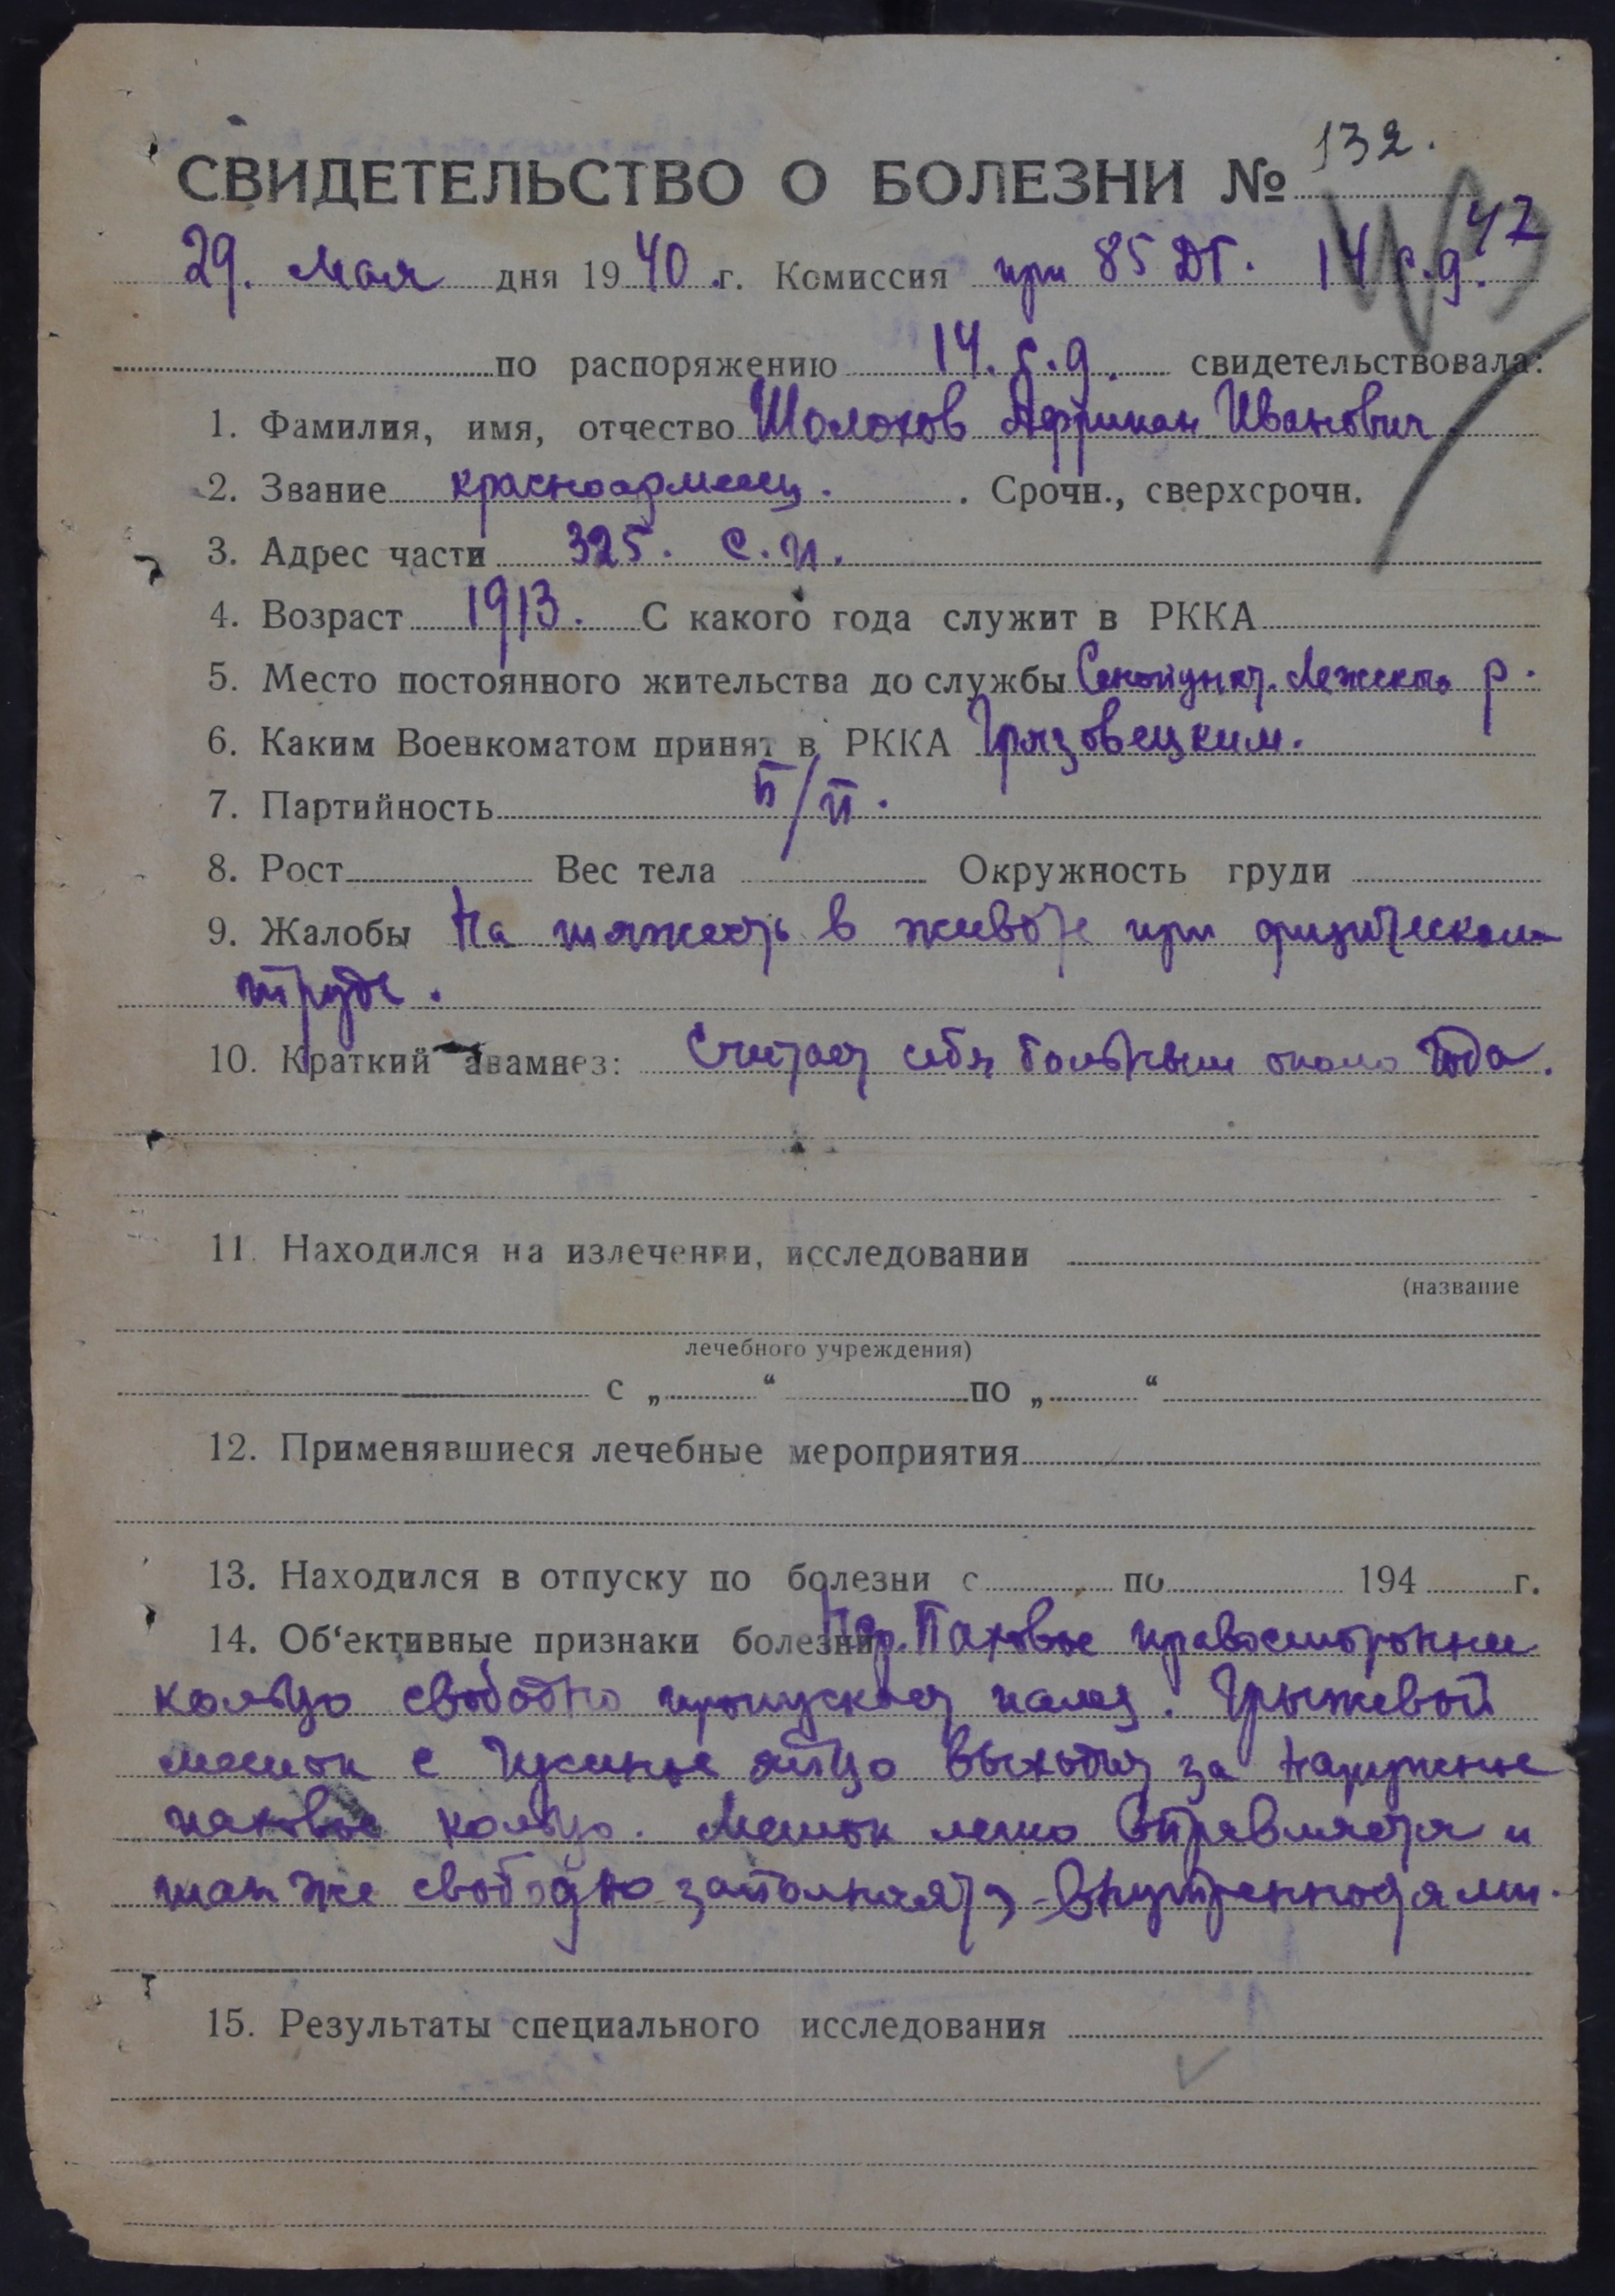 СВИДЕТЕЛЬСТВО О БОЛЕЗНИ № 132.
47
29. Мая дня 1940 .г. Комиссия при 85 ДГ. 14 с.д.
по распоряжению 14. с.д. свидетельствовала:
1. Фамилия, имя, отчество Шолохов Африкан Иванович
2. Звание красноармеец. . Срочн., сверхсрочн.
3. Адрес части 325. с.п.
4. Возраст 1913. С какого года служит в РККА
5. Место постоянного жительства до службы Лежского р.
6. Каким Военкоматом принят в РККА Грязовецким.
7. Партийность б/п.
8. Рост Вес тела Окружность груди
9. Жалобы На тяжесть в животе при физическом
труде.
10. Краткий анамнез: Считает себя больным около года.
11. Находился на излечении, исследовании
(название
лечебного учреждения)
с „ “ по „ “
12. Применявшиеся лечебные мероприятия
13. Находился в отпуску по болезни с по 194 г.
14. Об‘ективные признаки болезни Паховое правосторонне
кольцо свободно пропускает палец. Грыжевой
мешок с гусиное яйцо выходит за наружное
паховое кольцо. Мешок легко вправляется и
так же свободно заполняется внутренностями.
15. Результаты специального исследования